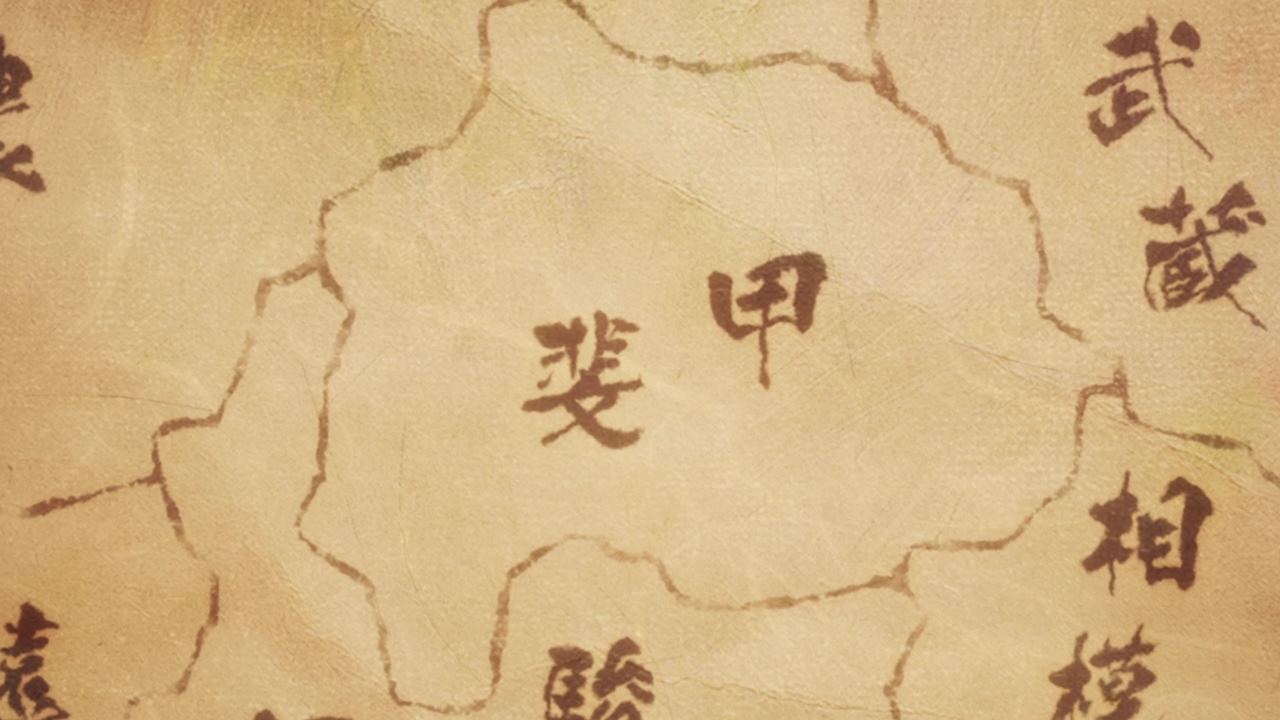 甲斐
武蔵
相模
駿